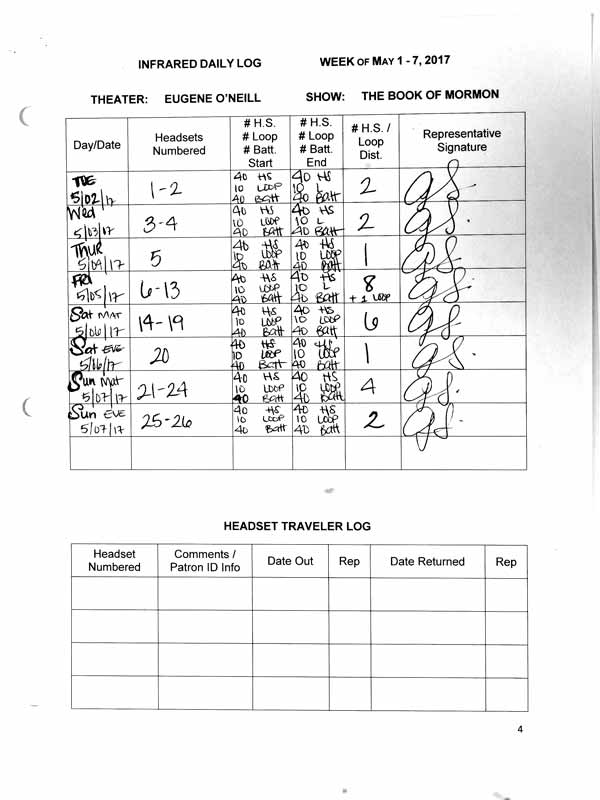 INFRARED DAILY LOG WEEK OF MAY 1 - 7, 2017
THEATER: EUGENE O'NEILL SHOW: THE BOOK OF MORMON
Day/Date Headsets Numbered # H.S. # Loop # Batt. Start # H.S. # Loop # Batt. End # H.S. / Loop Dist. Representative Signature
TUE 5/02/17 1-2 40 HS 10 LOOP 40 BATT 40 HS 10 L 40 BATT 2 GS.
Wed 5/03/17 3-4 40 HS 10 LOOP 40 Batt 40 HS 10 L 40 BATT 2 GS.
THUR 5/04/17 5 40 HS 10 LOOP 40 BATT 40 HS 10 LOOP 40 BATT 1 GS.
FRI 5/05/17 6-13 40 HS 10 LOOP 40 BATT 40 HS 10 L 40 BATT 8 + 1 LOOP GS.
Sat MAT 5/06/17 14-19 40 HS 10 LOOP 40 Batt 40 HS 10 LOOP 40 Batt 6 GS.
Sat EVE 5/06/17 20 40 HS 10 LOOP 40 Batt 40 HS 10 LOOP 40 Batt 1 GS.
Sun Mat 5/07/17 21-24 40 HS 10 LOOP 40 Batt 40 HS 10 LOOP 40 Batt 4 GS.
Sun EVE 5/07/17 25-26 40 HS 10 LOOP 40 Batt 40 HS 10 LOOP 40 Batt 2 GS.
HEADSET TRAVELER LOG
Headset Numbered Comments / Patron ID Info Date Out Rep Date Returned Rep
4